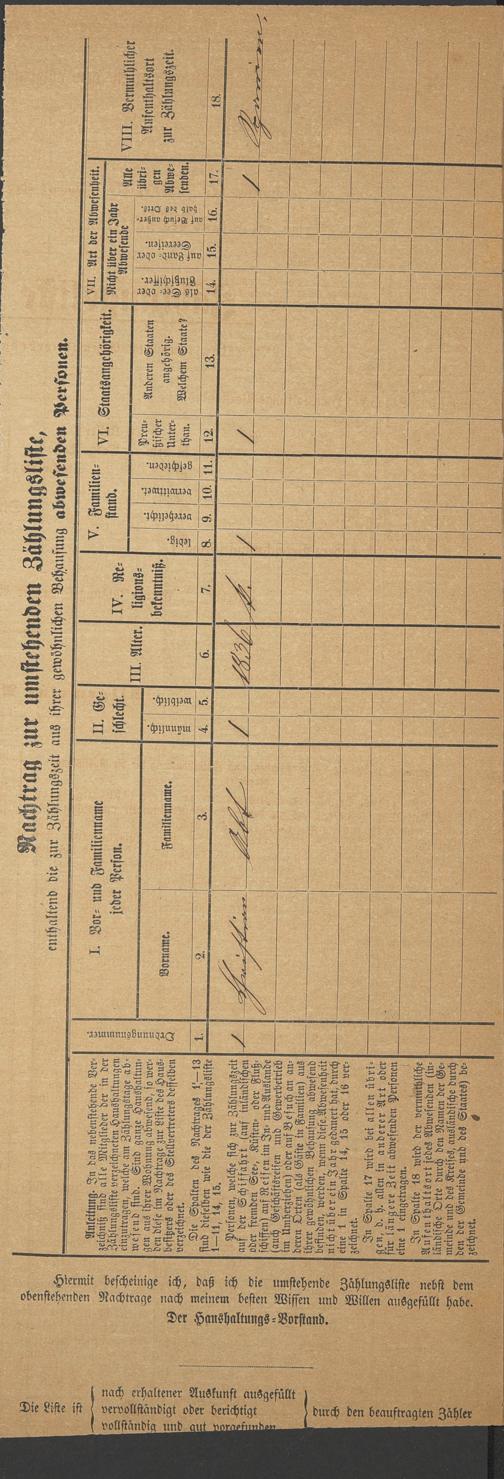 Nachtrag zur umstehenden Zählungsliste,
enthaltend die zur Zählungszeit aus ihrer gewöhnlichen Behausung abwesenden Personen.
Anleitung. In das nebenstehende Ver-
zeichniß sind alle Mitglieder der in der
Zählungsliste verzeichneten Haushaltungen
einzutragen, welche am Zählungstage ab-
wesend sind. Sind ganze Haushaltun-
gen aus ihrer Wohnung abwesend, so wer-
den diese im Nachtrage zur Liste des Haus-
besitzers oder des Stellvertreters desselben
verzeichnet.
Die Spalten des Nachtrages 1—13
sind dieselben wie die der Zählungsliste
1—11, 14, 15.
Personen, welche sich zur Zählungszeit
auf der Schifffahrt (auf inländischen
oder fremden See-, Küsten- oder Fluß-
schiffen) auf Reisen im In- und Auslande
(auch Geschäftsreisen und Gewerbebetrieb
im Umherziehen) oder auf Besuch an an-
deren Orten (als Gäste in Familien) aus
ihrer gewöhnlichen Behausung abwesend
befinden, werden, wenn diese Abwesenheit
nicht über ein Jahr gedauert hat, durch
eine 1 in Spalte 14, 15 oder 16 ver-
zeichnet.
In Spalte 17 wird bei allen übri-
gen, d. h. allen in anderer Art oder
für längere Zeit abwesenden Personen
eine 1 eingetragen.
In Spalte 18 wird der vermuthliche
Aufenthaltsort jedes Abwesenden (in-
ländische Orte durch den Namen der Ge-
meinde und des Kreises, ausländische durch
den der Gemeinde und des Staates) be-
zeichnet.
Ordnungsnummer.
I. Vor- und Familienname
jeder Person.
Vorname.
Familienname.
II. Ge-
schlecht.
männlich.
weiblich.
III. Alter.
IV. Re-
ligions-
bekenntniß.
V. Familien-
stand.
ledig.
verehelicht.
verwittwet.
geschieden.
VI. Staatsangehörigkeit.
Preu-
ßischer
Unter-
than.
Anderen Staaten
angehörig.
Welchem Staate?
VII. Art der Abwesenheit.
Nicht über ein Jahr
Abwesende
als See- oder
Flußschiffer.
auf Land- oder
Seereisen.
auf Besuch außer-
halb des Orts.
Alle
übri-
gen
Abwe-
senden.
VIII. Vermuthlicher
Aufenthaltsort
zur Zählungszeit.
1. 2. 3. 4. 5. 6. 7. 8. 9. 10. 11. 12. 13. 14. 15. 16. 17. 18.
1 Christian 1 1836 1 1 1
Hiermit bescheinige ich, daß ich die umstehende Zählungsliste nebst dem
obenstehenden Nachtrage nach meinem besten Wissen und Willen ausgefüllt habe.
Der Haushaltungs-Vorstand.
nach erhaltener Auskunft ausgefüllt
Die Liste ist vervollständigt oder berichtigt durch den beauftragten Zähler
vollständig und gut vorgefunden